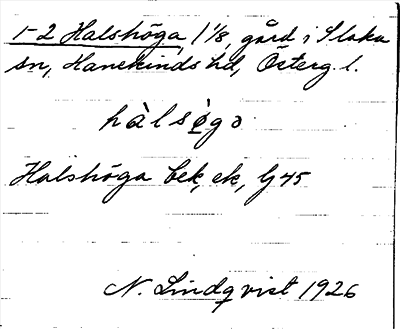 1-2 Halshöga, 1 1/8, gård i Slaka
sn, Hanekinds hd, Österg. l.
hàlsø̨gɔ
Halshöga bek, ek, Lj 45
N. Lindqvist 1926